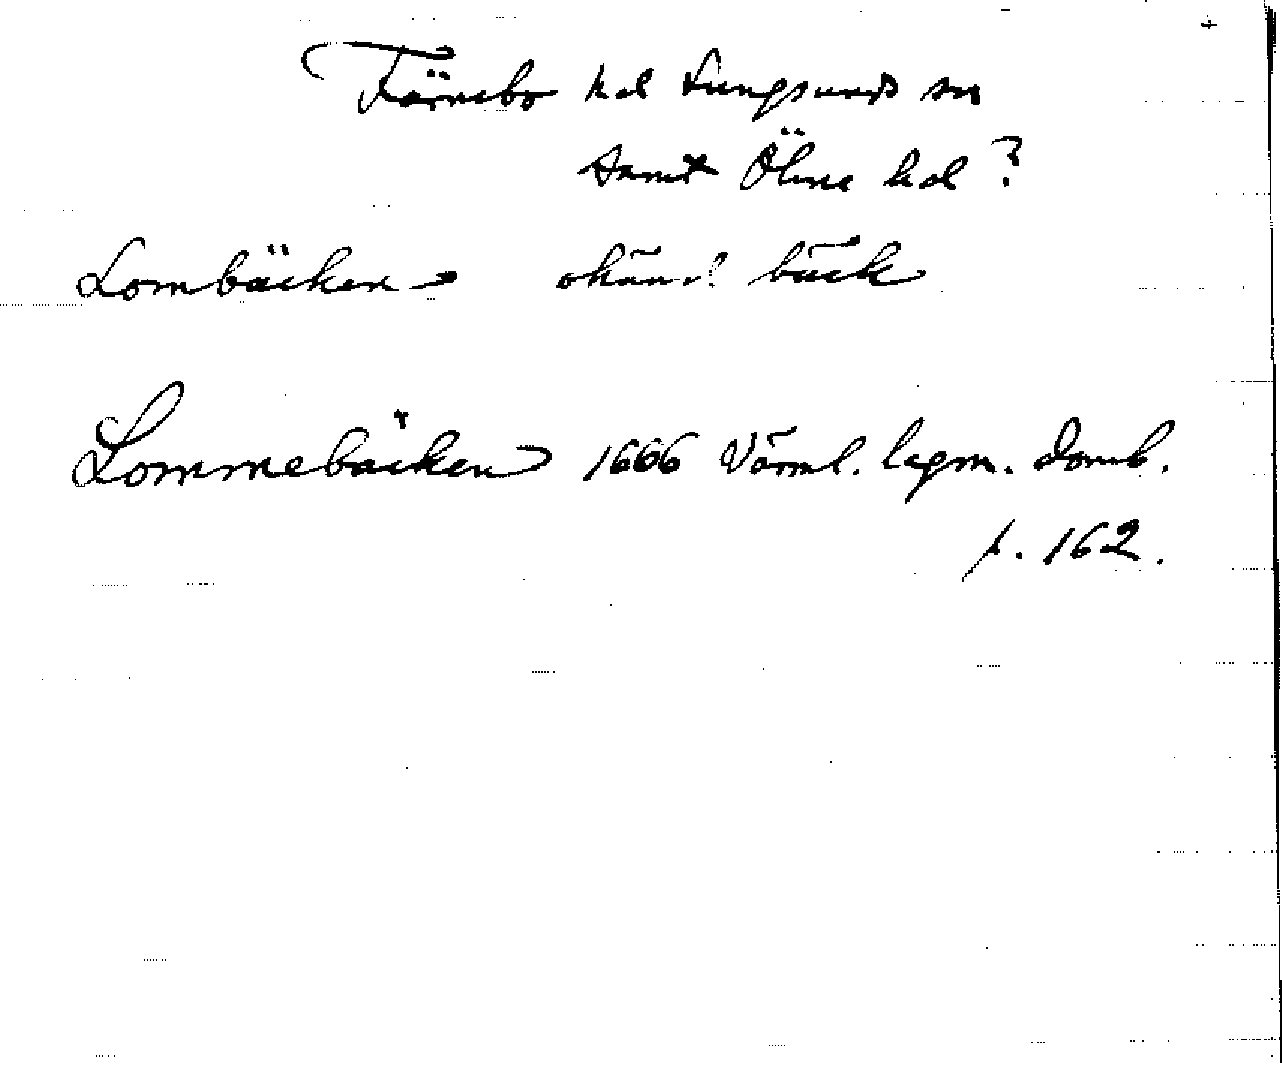 Färnebo hd Lungsunds sn
samt Ölme hd?
Lombäcken okänd bäck
Lommebäcken 1666 Värml. lagm. domb.
p. 162.